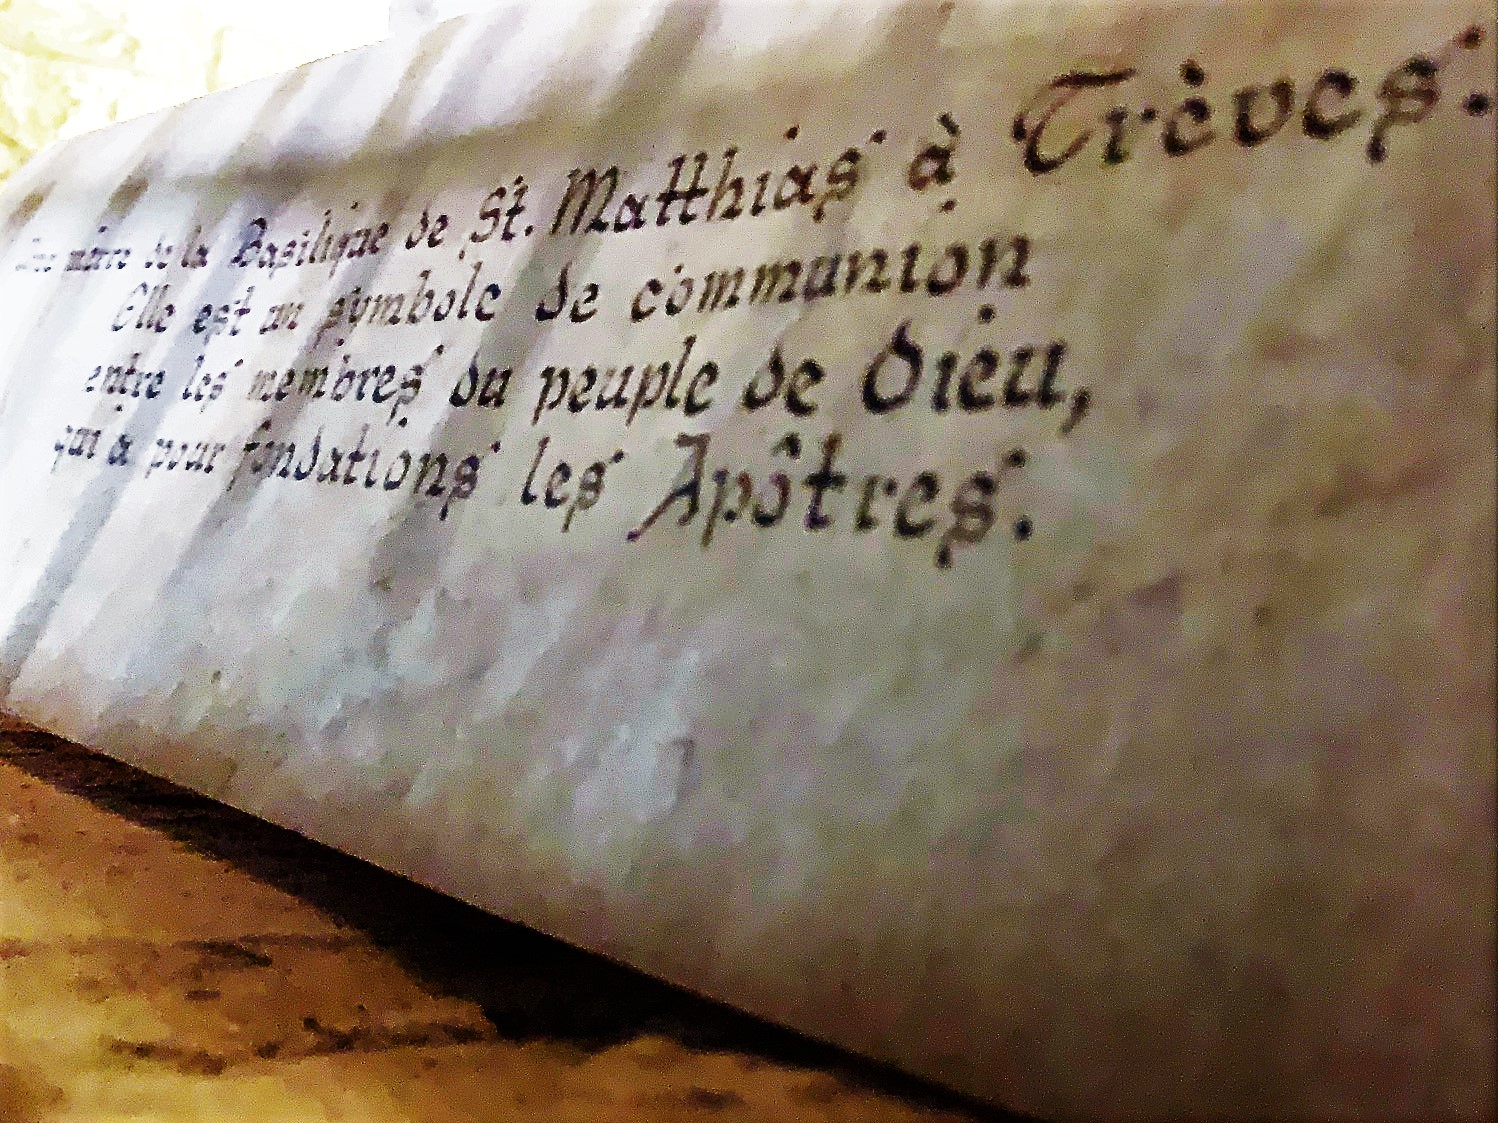 de la Basilique de St. Matthias à Trèves.
Elle est un symbole de communion
entre les membres du peuple de Dieu,
qui a pour fondations les Apôtres.